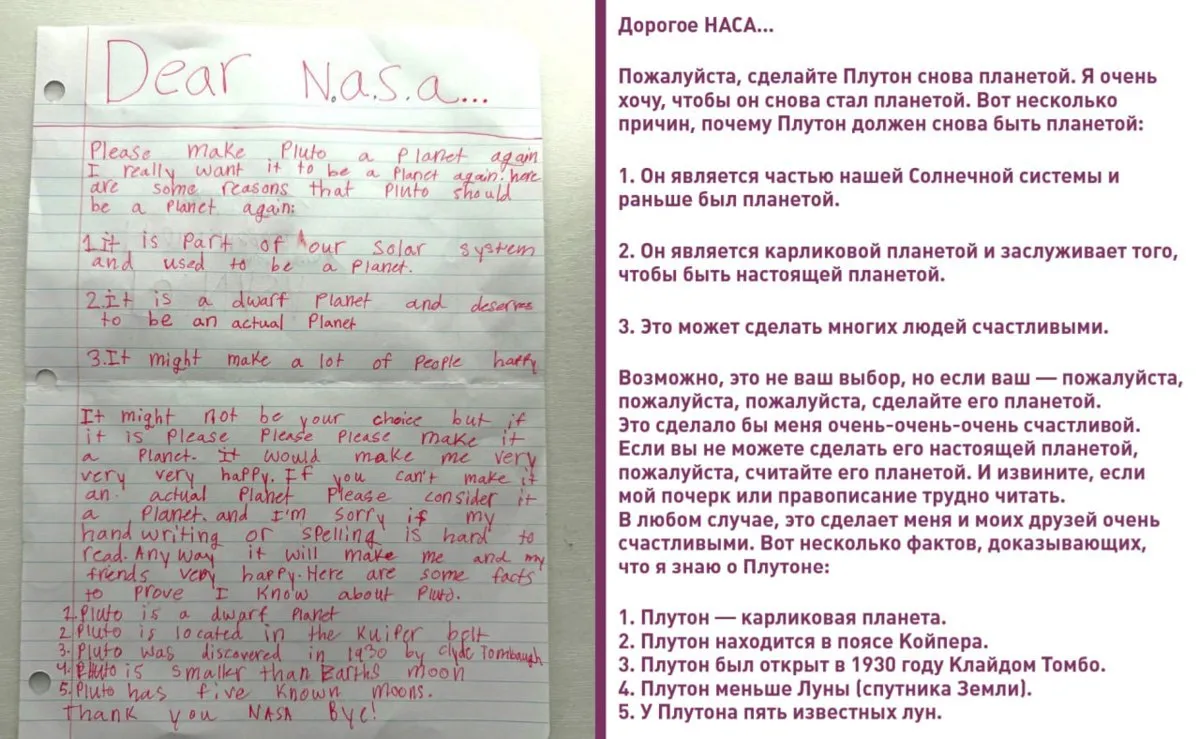 Dear N.a.s.a...
Please make Pluto a Planet again
I really want it to be a Planet again. here
are some reasons that Pluto should
be a Planet again:
1.it is part of our solar system
and used to be a Planet.
2.It is a dwarf Planet and deserves
to be an actual Planet
3.It might make a lot of People happy
It might not be your choice but if
it is Please Please Please make it
a Planet. it would make me very
very very happy. If you can't make it
an actual Planet Please consider it
a Planet. and I'm sorry if my
hand writing or spelling is hard to
read. Any way it will make me and my
friends very happy. Here are some facts
to Prove I Know about Pluto.
1. Pluto is a dwarf Planet
2. Pluto is located in the Kuiper belt
3. Pluto was discovered in 1930 by Clyde Tombaugh
4. Pluto is smaller than Earths moon
5. Pluto has five known moons.
Thank you NASA Bye!
Дорогое НАСА...
Пожалуйста, сделайте Плутон снова планетой. Я очень
хочу, чтобы он снова стал планетой. Вот несколько
причин, почему Плутон должен снова быть планетой:
1. Он является частью нашей Солнечной системы и
раньше был планетой.
2. Он является карликовой планетой и заслуживает того,
чтобы быть настоящей планетой.
3. Это может сделать многих людей счастливыми.
Возможно, это не ваш выбор, но если ваш — пожалуйста,
пожалуйста, пожалуйста, сделайте его планетой.
Это сделало бы меня очень-очень-очень счастливой.
Если вы не можете сделать его настоящей планетой,
пожалуйста, считайте его планетой. И извините, если
мой почерк или правописание трудно читать.
В любом случае, это сделает меня и моих друзей очень
счастливыми. Вот несколько фактов, доказывающих,
что я знаю о Плутоне:
1. Плутон — карликовая планета.
2. Плутон находится в поясе Койпера.
3. Плутон был открыт в 1930 году Клайдом Томбо.
4. Плутон меньше Луны (спутника Земли).
5. У Плутона пять известных лун.